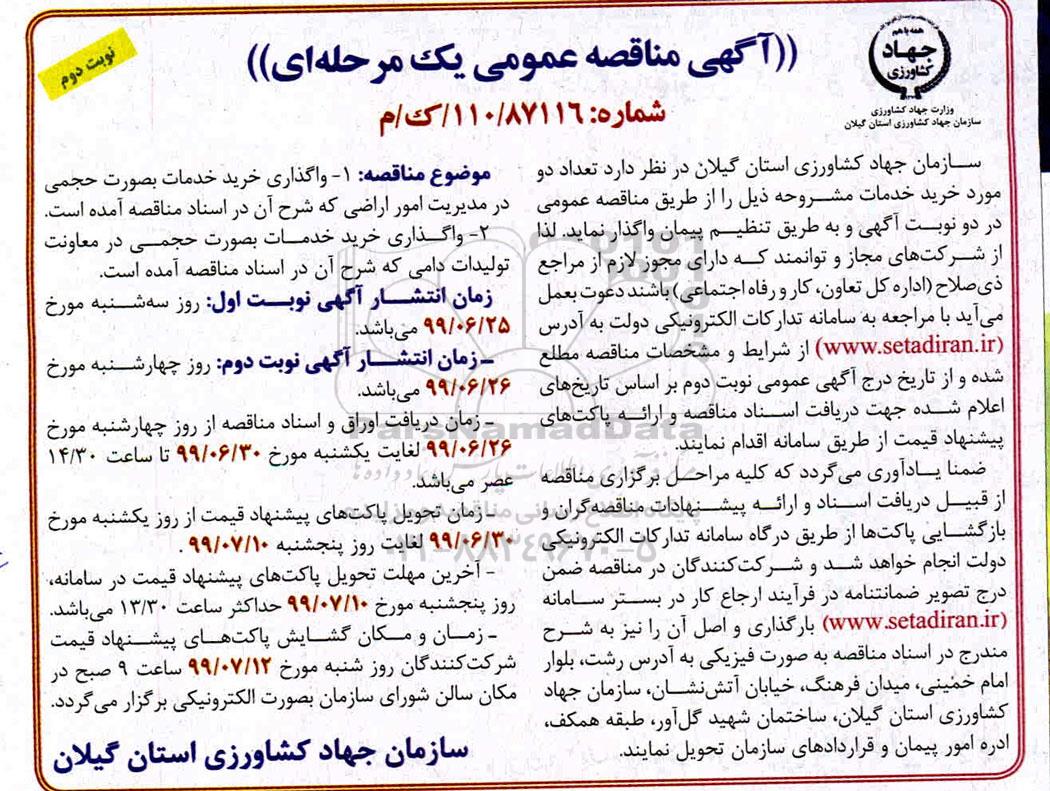 نوبت دوم
((آگهی مناقصه عمومی یک مرحله‌ای))
شماره: ۱۱۰/۸۷۱۱۶/ک/م
همه با هم
جهاد
کشاورزی
وزارت جهاد کشاورزی
سازمان جهاد کشاورزی استان گیلان
سازمان جهاد کشاورزی استان گیلان در نظر دارد تعداد دو
مورد خرید خدمات مشروحه ذیل را از طریق مناقصه عمومی
در دو نوبت آگهی و به طریق تنظیم پیمان واگذار نماید. لذا
از شرکت‌های مجاز و توانمند که دارای مجوز لازم از مراجع
ذی‌صلاح (اداره کل تعاون، کار و رفاه اجتماعی) باشند دعوت بعمل
می‌آید با مراجعه به سامانه تدارکات الکترونیکی دولت به آدرس
(www.setadiran.ir) از شرایط و مشخصات مناقصه مطلع
شده و از تاریخ درج آگهی عمومی نوبت دوم بر اساس تاریخ‌های
اعلام شده جهت دریافت اسناد مناقصه و ارائه پاکت‌های
پیشنهاد قیمت از طریق سامانه اقدام نمایند
ضمنا یادآوری می‌گردد که کلیه مراحل برگزاری مناقصه
از قبیل دریافت اسناد و ارائه پیشنهادات مناقصه‌گران و
بازگشایی پاکت‌ها از طریق درگاه سامانه تدارکات الکترونیکی
دولت انجام خواهد شد و شرکت‌کنندگان در مناقصه ضمن
درج تصویر ضمانتنامه در فرآیند ارجاع کار در بستر سامانه
(www.setadiran.ir) بارگذاری و اصل آن را نیز به شرح
مندرج در اسناد مناقصه به صورت فیزیکی به آدرس رشت، بلوار
امام خمینی، میدان فرهنگ، خیابان آتش‌نشان، سازمان جهاد
کشاورزی استان گیلان، ساختمان شهید گل‌آور، طبقه همکف،
ادره امور پیمان و قراردادهای سازمان تحویل نمایند.
موضوع مناقصه: ۱- واگذاری خرید خدمات بصورت حجمی
در مدیریت امور اراضی که شرح آن در اسناد مناقصه آمده است.
۲- واگذاری خرید خدمات بصورت حجمی در معاونت
تولیدات دامی که شرح آن در اسناد مناقصه آمده است.
زمان انتشار آگهی نوبت اول: روز سه‌شنبه مورخ
۹۹/۰۶/۲۵ می‌باشد.
- زمان انتشار آگهی نوبت دوم: روز چهارشنبه مورخ
۹۹/۰۶/۲۶ می‌باشد.
- زمان دریافت اوراق و اسناد مناقصه از روز چهارشنبه مورخ
۹۹/۰۶/۲۶ لغایت یکشنبه مورخ ۹۹/۰۶/۳۰ تا ساعت ۱۴/۳۰
عصر می‌باشد.
- زمان تحویل پاکت‌های پیشنهاد قیمت از روز یکشنبه مورخ
۹۹/۰۶/۳۰ لغایت روز پنجشنبه ۹۹/۰۷/۱۰ .
- آخرین مهلت تحویل پاکت‌های پیشنهاد قیمت در سامانه،
روز پنجشنبه مورخ ۹۹/۰۷/۱۰ حداکثر ساعت ۱۳/۳۰ می‌باشد.
- زمان و مکان گشایش پاکت‌های پیشنهاد قیمت
شرکت‌کنندگان روز شنبه مورخ ۹۹/۰۷/۱۲ ساعت ۹ صبح در
مکان سالن شورای سازمان بصورت الکترونیکی برگزار می‌گردد.
سازمان جهاد کشاورزی استان گیلان
ParsNamadData